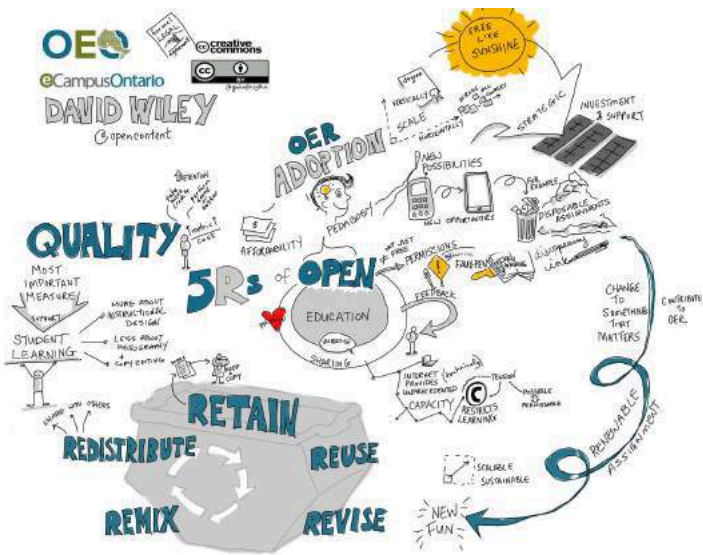 OEO
eCampusOntario
DAVID WILEY
@opencontent
LEGAL
creative
commons
cc
BY
FREE
LIKE
SUNSHINE
STRATEGIC
INVESTMENT
& SUPPORT
VERTICALLY
SCALE
HORIZONTALLY
OER
ADOPTION
PEDAGOGY
AFFORDABILITY
NEW
POSSIBILITIES
NEW OPPORTUNITIES
FOR
EXAMPLE
DISPOSABLE
ASSIGNMENTS
QUALITY
MOST
IMPORTANT
MEASURE
SUPPORT
STUDENT
LEARNING
MORE ABOUT
INSTRUCTIONAL
DESIGN
LESS ABOUT
PHOTOGRAPHY
+
COPY EDITING
5Rs of OPEN
NOT JUST
FREE
PERMISSIONS
FEEDBACK
disappearing
ink
EDUCATION
SHARING
INTERNET
PROVIDES
UNPRECEDENTED
CAPACITY
C
RESTRICTS
LEARNING
TENSION
POSSIBLE
PERMISSIBLE
CHANGE
TO
SOMETHING
THAT
MATTERS
CONTRIBUTE
TO
OER.
RENEWABLE
ASSIGNMENT
SCALABLE
SUSTAINABLE
NEW
FUN
KEEP
COPY
RETAIN
SHARE WITH OTHERS
REDISTRIBUTE
REUSE
REMIX
REVISE